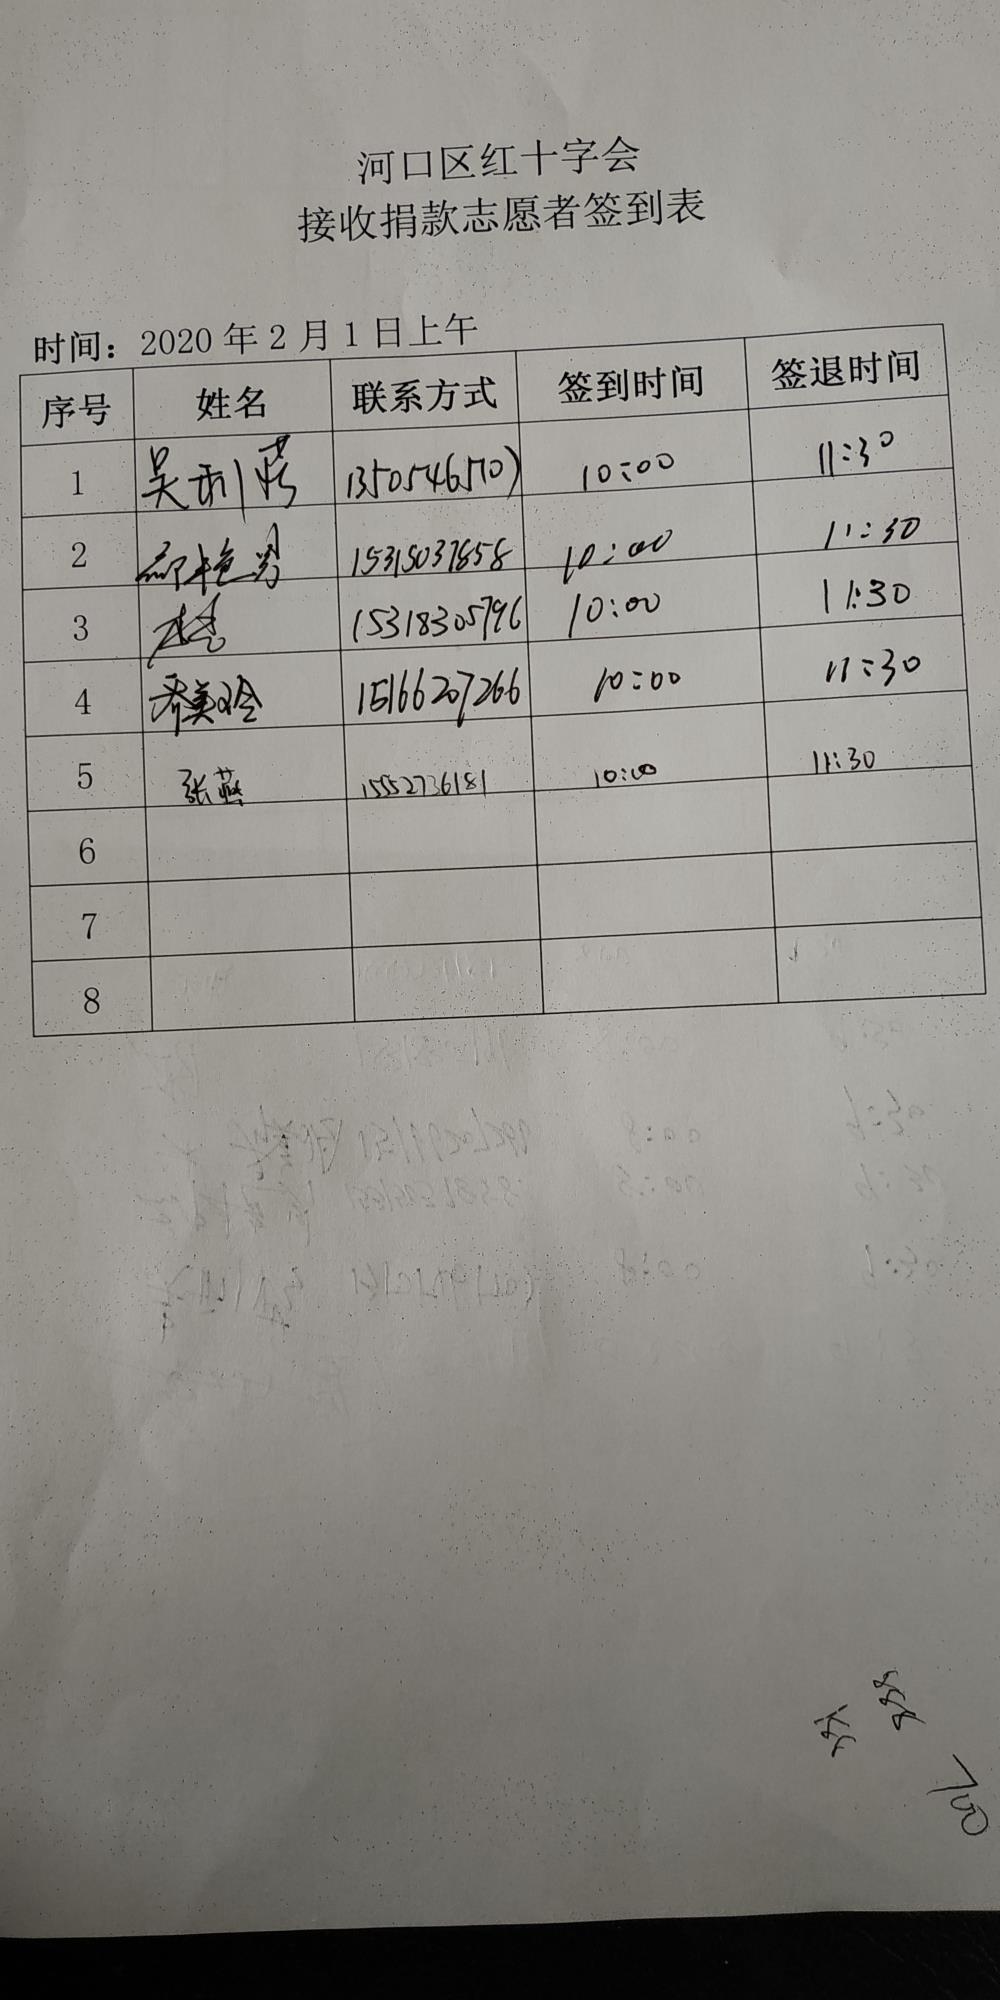 河口区红十字会
接收捐款志愿者签到表
时间：2020年2月1日上午
序号 姓名 联系方式 签到时间 签退时间
1 吴利 10:00 11:30
2 15315037858 10:00 11:30
3 15318305796 10:00 11:30
4 乔美玲 15166207266 10:00 11:30
5 张燕 15552736181 10:00 11:30
6
7
8
700